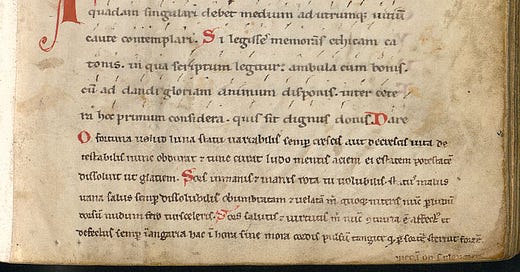 A quadam singulari debet medium ad utrumq; uitiū
caute contemplari. Si legisse memoras ethicam ca
tonis. in qua scriptum legitur. ambula cum bonis.
cū ad dandi gloriam animum disponis. inter cete
ra hoc primum considera. quis sit dignus donis. Dare
O fortuna uelud luna statu uariabilis semp crescis aut decrescis uita de
testabilis nunc obdurat & tunc curat ludo mentis aciem egestatem potestatē
dissoluit ut glatiem. Sors inmanis & inanis rota tu uolubilis status malus
uana salus semp dissolubilis obumbratam & uelatā m quoq; niteris nūc p ludum
dorsū nudum fero tui sceleris. Sors salutis & uirtutis m nūc gtraria ē affect &
defectus semp ī angaria hac ī hora sine mora cordis pulsū tangite qd p sortē sternit fortē